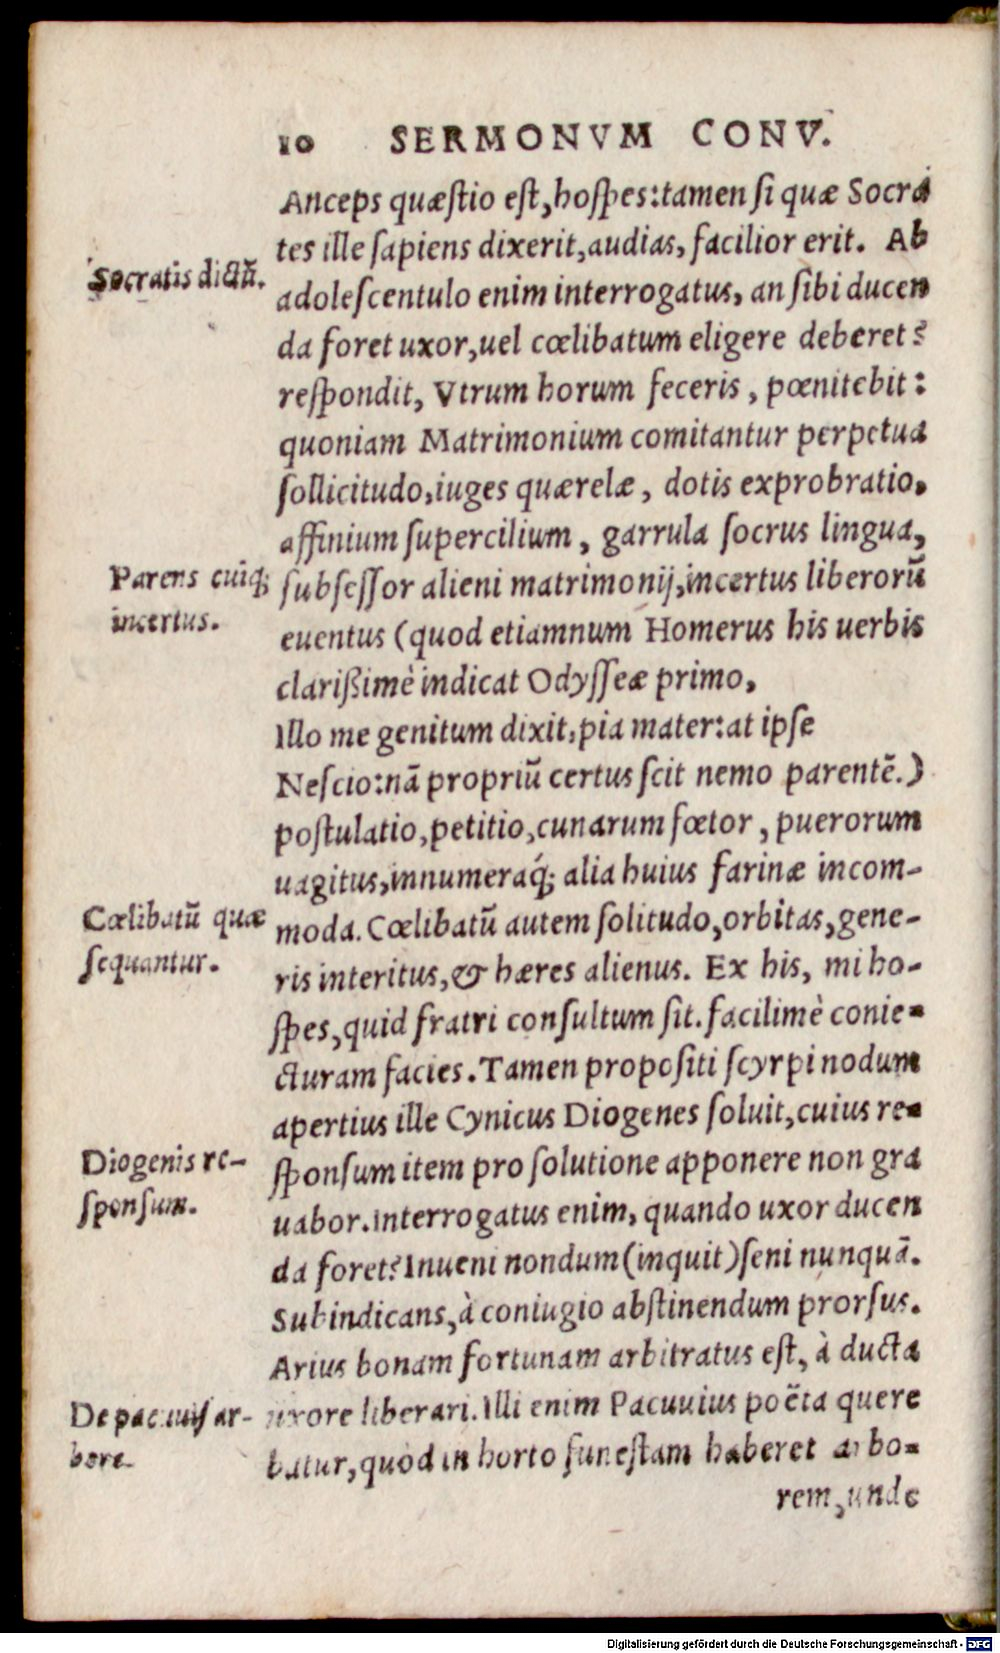 10 SERMONVM CONV.
Anceps quæstio est, hospes: tamen si quæ Socra
tes ille sapiens dixerit, audias, facilior erit. Ab
Socratis dictū.
adolescentulo enim interrogatus, an sibi ducen
da foret uxor, uel cœlibatum eligere deberet?
respondit, Vtrum horum feceris, pœnitebit:
quoniam Matrimonium comitantur perpetua
sollicitudo, iuges quærelæ, dotis exprobratio,
affinium supercilium, garrula socrus lingua,
Parens cuiq;
incertus.
subsessor alieni matrimonij, incertus liberorū
euentus (quod etiamnum Homerus his uerbis
clarißimè indicat Odysseæ primo,
Illo me genitum dixit, pia mater: at ipse
Nescio: nā propriū certus scit nemo parentē.)
postulatio, petitio, cunarum fœtor, puerorum
uagitus, innumeraq́; alia huius farinæ incom-
Cœlibatū quæ
sequantur.
moda. Cœlibatū autem solitudo, orbitas, gene-
ris interitus, & hæres alienus. Ex his, mi ho-
spes, quid fratri consultum sit. facilimè conie-
cturam facies. Tamen propositi scyrpi nodum
apertius ille Cynicus Diogenes soluit, cuius re-
Diogenis re-
sponsum.
sponsum item pro solutione apponere non gra
uabor. Interrogatus enim, quando uxor ducen
da foret? Iuueni nondum (inquit) seni nunquā.
Subindicans, à coniugio abstinendum prorsus.
Arius bonam fortunam arbitratus est, à ducta
De pacuuij ar-
bore.
uxore liberari. Illi enim Pacuuius poëta quere
batur, quòd in horto funestam haberet arbo-
rem, unde
Digitalisierung gefördert durch die Deutsche Forschungsgemeinschaft - DFG